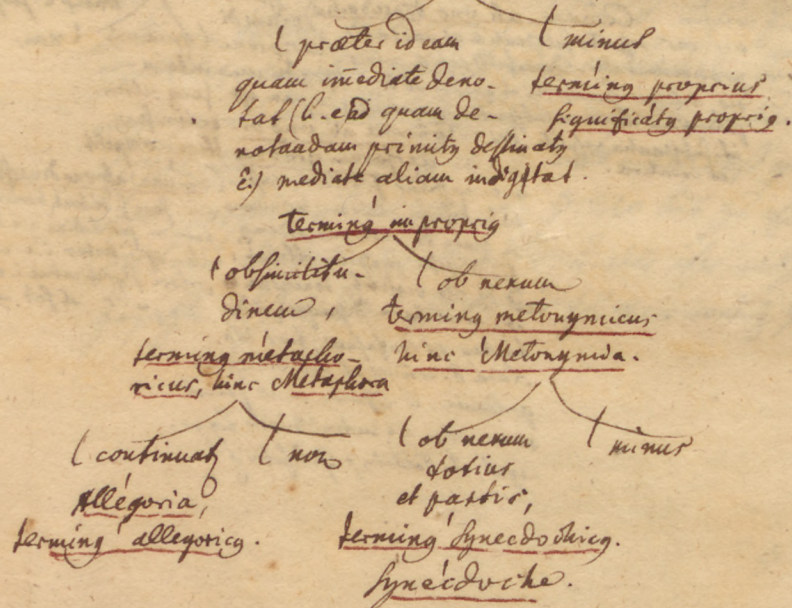 ( præter ideam
quam im̄ediate deno-
tat (h. e. ad quam de-
notandam primitus destinatus
E.) mediate aliam indigitat.
( minus
terminus proprius
significatus proprius.
terminus improprius
( ob similitu-
dinem,
terminus metapho-
ricus, hinc Metaphora
( ob nexum
terminus metonymicus
hinc Metonymia.
( continuat
Allegoria,
terminus allegoricus.
( non
( ob nexum
totius
et partis,
terminus Synecdochicus.
Synecdoche.
( minus